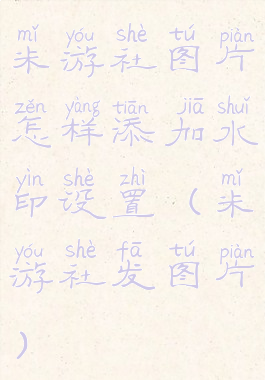 mǐ yóu shè tú piàn
米游社图片
zěn yàng tiān jiā shuǐ
怎样添加水
yìn shè zhì mǐ
印设置（米
yóu shè fā tú piàn
游社发图片
）